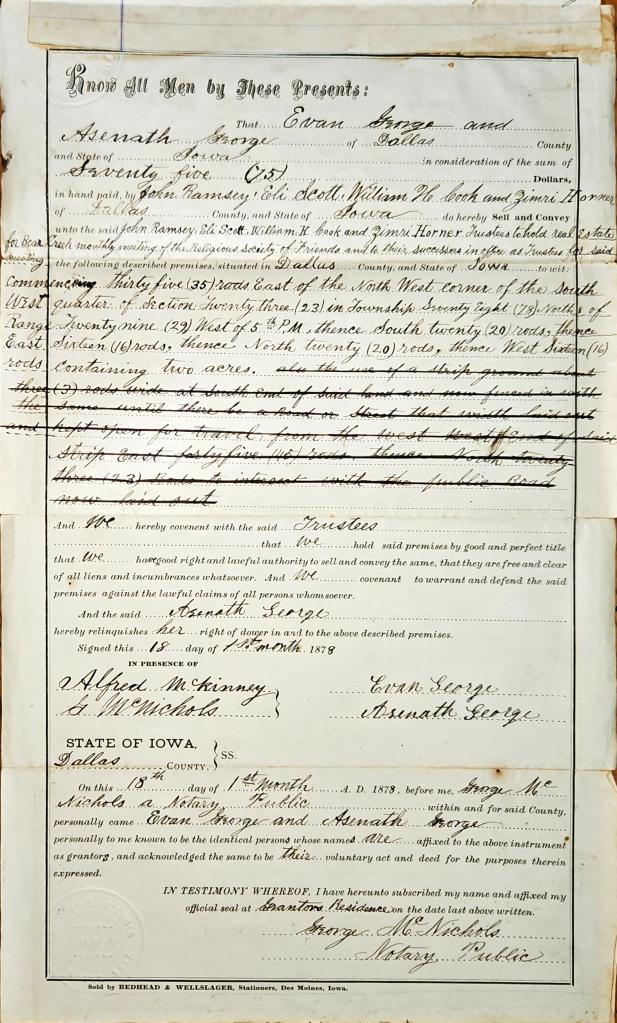 Know All Men by These Presents:
That Evan George and
Asenath George of Dallas County
and State of Iowa in consideration of the sum of
Seventy five (75) Dollars,
in hand paid, by John Ramsey, Eli Scott, William H. Cook and Zimri Horner
of Dallas County, and State of Iowa do hereby Sell and Convey
unto the said John Ramsey, Eli Scott, William H Cook and Zimri Horner Trustees to hold real Estate
for Bear Creek monthly meeting of the Religious Society of Friends and to their successors in office as Trustees for said
meeting
the following described premises, situated in Dallas County, and State of Iowa to wit:
Commencing thirty five (35) rods East of the North West corner of the South
West quarter of Section Twenty three (23) in Township Seventy Eight (78) North of
Range Twenty nine (29) West of 5th P.M, thence South twenty (20) rods, thence
East Sixteen (16) rods, thence North twenty (20) rods, thence West Sixteen (16)
rods Containing two acres. also the use of a strip ground about
three (3) rods wide at South End of said land and now fenced in with
the same until there be a Road or Street that width laid out
and kept open for travel, from the West West End of said
Strip East forty five (45) rods, thence North twenty
three (23) Rods to intersect with the public Road
now laid out
And We hereby covenent with the said Trustees
that We hold said premises by good and perfect title
that we have good right and lawful authority to sell and convey the same, that they are free and clear
of all liens and incumbrances whatsoever. And We covenant to warrant and defend the said
premises against the lawful claims of all persons whomsoever.
And the said Asenath George
hereby relinquishes her right of dower in and to the above described premises.
Signed this 18 day of 1st month 1878
IN PRESENCE OF
Alfred McKinney Evan George
G McNichols Asenath George
STATE OF IOWA,
Dallas COUNTY, } SS.
On this 18th day of 1st month A. D. 1878, before me, George Mc
Nichols a Notary Public within and for said County,
personally came Evan George and Asenath George
personally to me known to be the identical persons whose names are affixed to the above instrument
as grantors, and acknowledged the same to be their voluntary act and deed for the purposes therein
expressed.
IN TESTIMONY WHEREOF, I have hereunto subscribed my name and affixed my
official seal at Grantors Residence on the date last above written.
George McNichols
Notary Public
Sold by REDHEAD & WELLSLAGER, Stationers, Des Moines, Iowa.